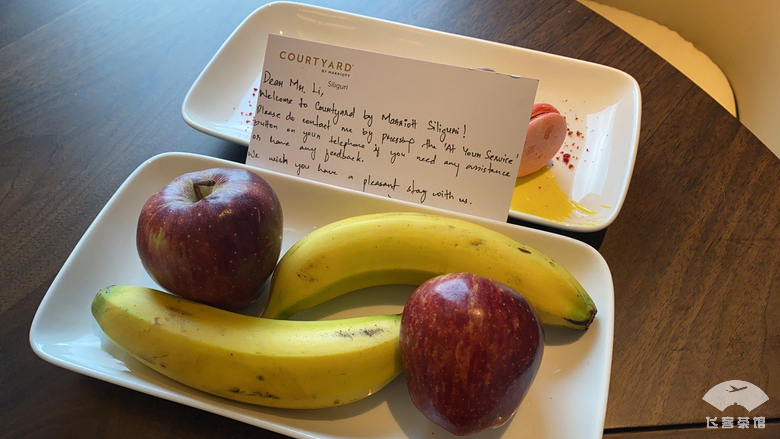 COURTYARD®
BY MARRIOTT
Siliguri
Dear Mr. Li,
Welcome to Courtyard by Marriott Siliguri!
Please do contact me by pressing the 'At Your Service'
button on your telephone if you need any assistance
or have any feedback.
We wish you have a pleasant stay with us.
飞客茶馆